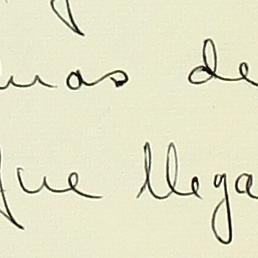 mas de
que llega